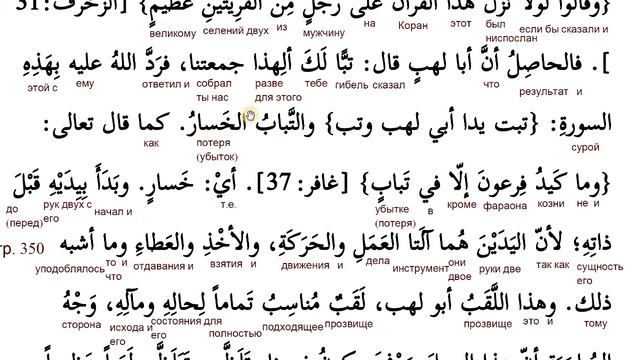 {وقالوا لولا نُزِّلَ هذا القرآن على رجلٍ مِن القريتين عظيمٍ} [الزخرف: 31
великому селений двух из мужчину на Коран этот был ниспослан если бы сказали и
]. فالحاصِلُ أنَّ أبا لهبٍ قال: تبًّا لَكَ ألِهذا جمعتنا، فرَدَّ اللهُ عليه بِهَذِهِ
этой с ему ответил и собрал ты нас разве для этого тебе гибель сказал что результат и
السورةِ: {تبت يدا أبي لهب وتب} والتَّبابُ الخَسارُ. كما قال تعالى:
как потеря (убыток) сурой
{وما كَيدُ فِرعونَ إلّا في تَبابٍ} [غافر: 37]. أيْ: خَسارٍ. وبَدَأَ بِيَدَيْهِ قَبْلَ
до (перед) его рук двух с начал и т.е. убытке (потеря) в кроме фараона козни не и
ذاتِهِ؛ لأنّ اليَدَيْنَ هُما آلَتا العَمَلِ والحَرَكَةِ، والأخْذِ والعَطاءِ وما أشبه
тр. 350 уподоблялось то и что отдавания и взятия и движения и дела инструмент они двое руки две так как сущность его
ذلك. وهذا اللَّقَبُ أبو لهب، لَقَبٌ مُناسِبُ تَماماً لِحالِهِ ومآلِهِ، وَجْهُ
сторона исхода и его состояния для его полностью подходящее прозвище прозвище это и тому